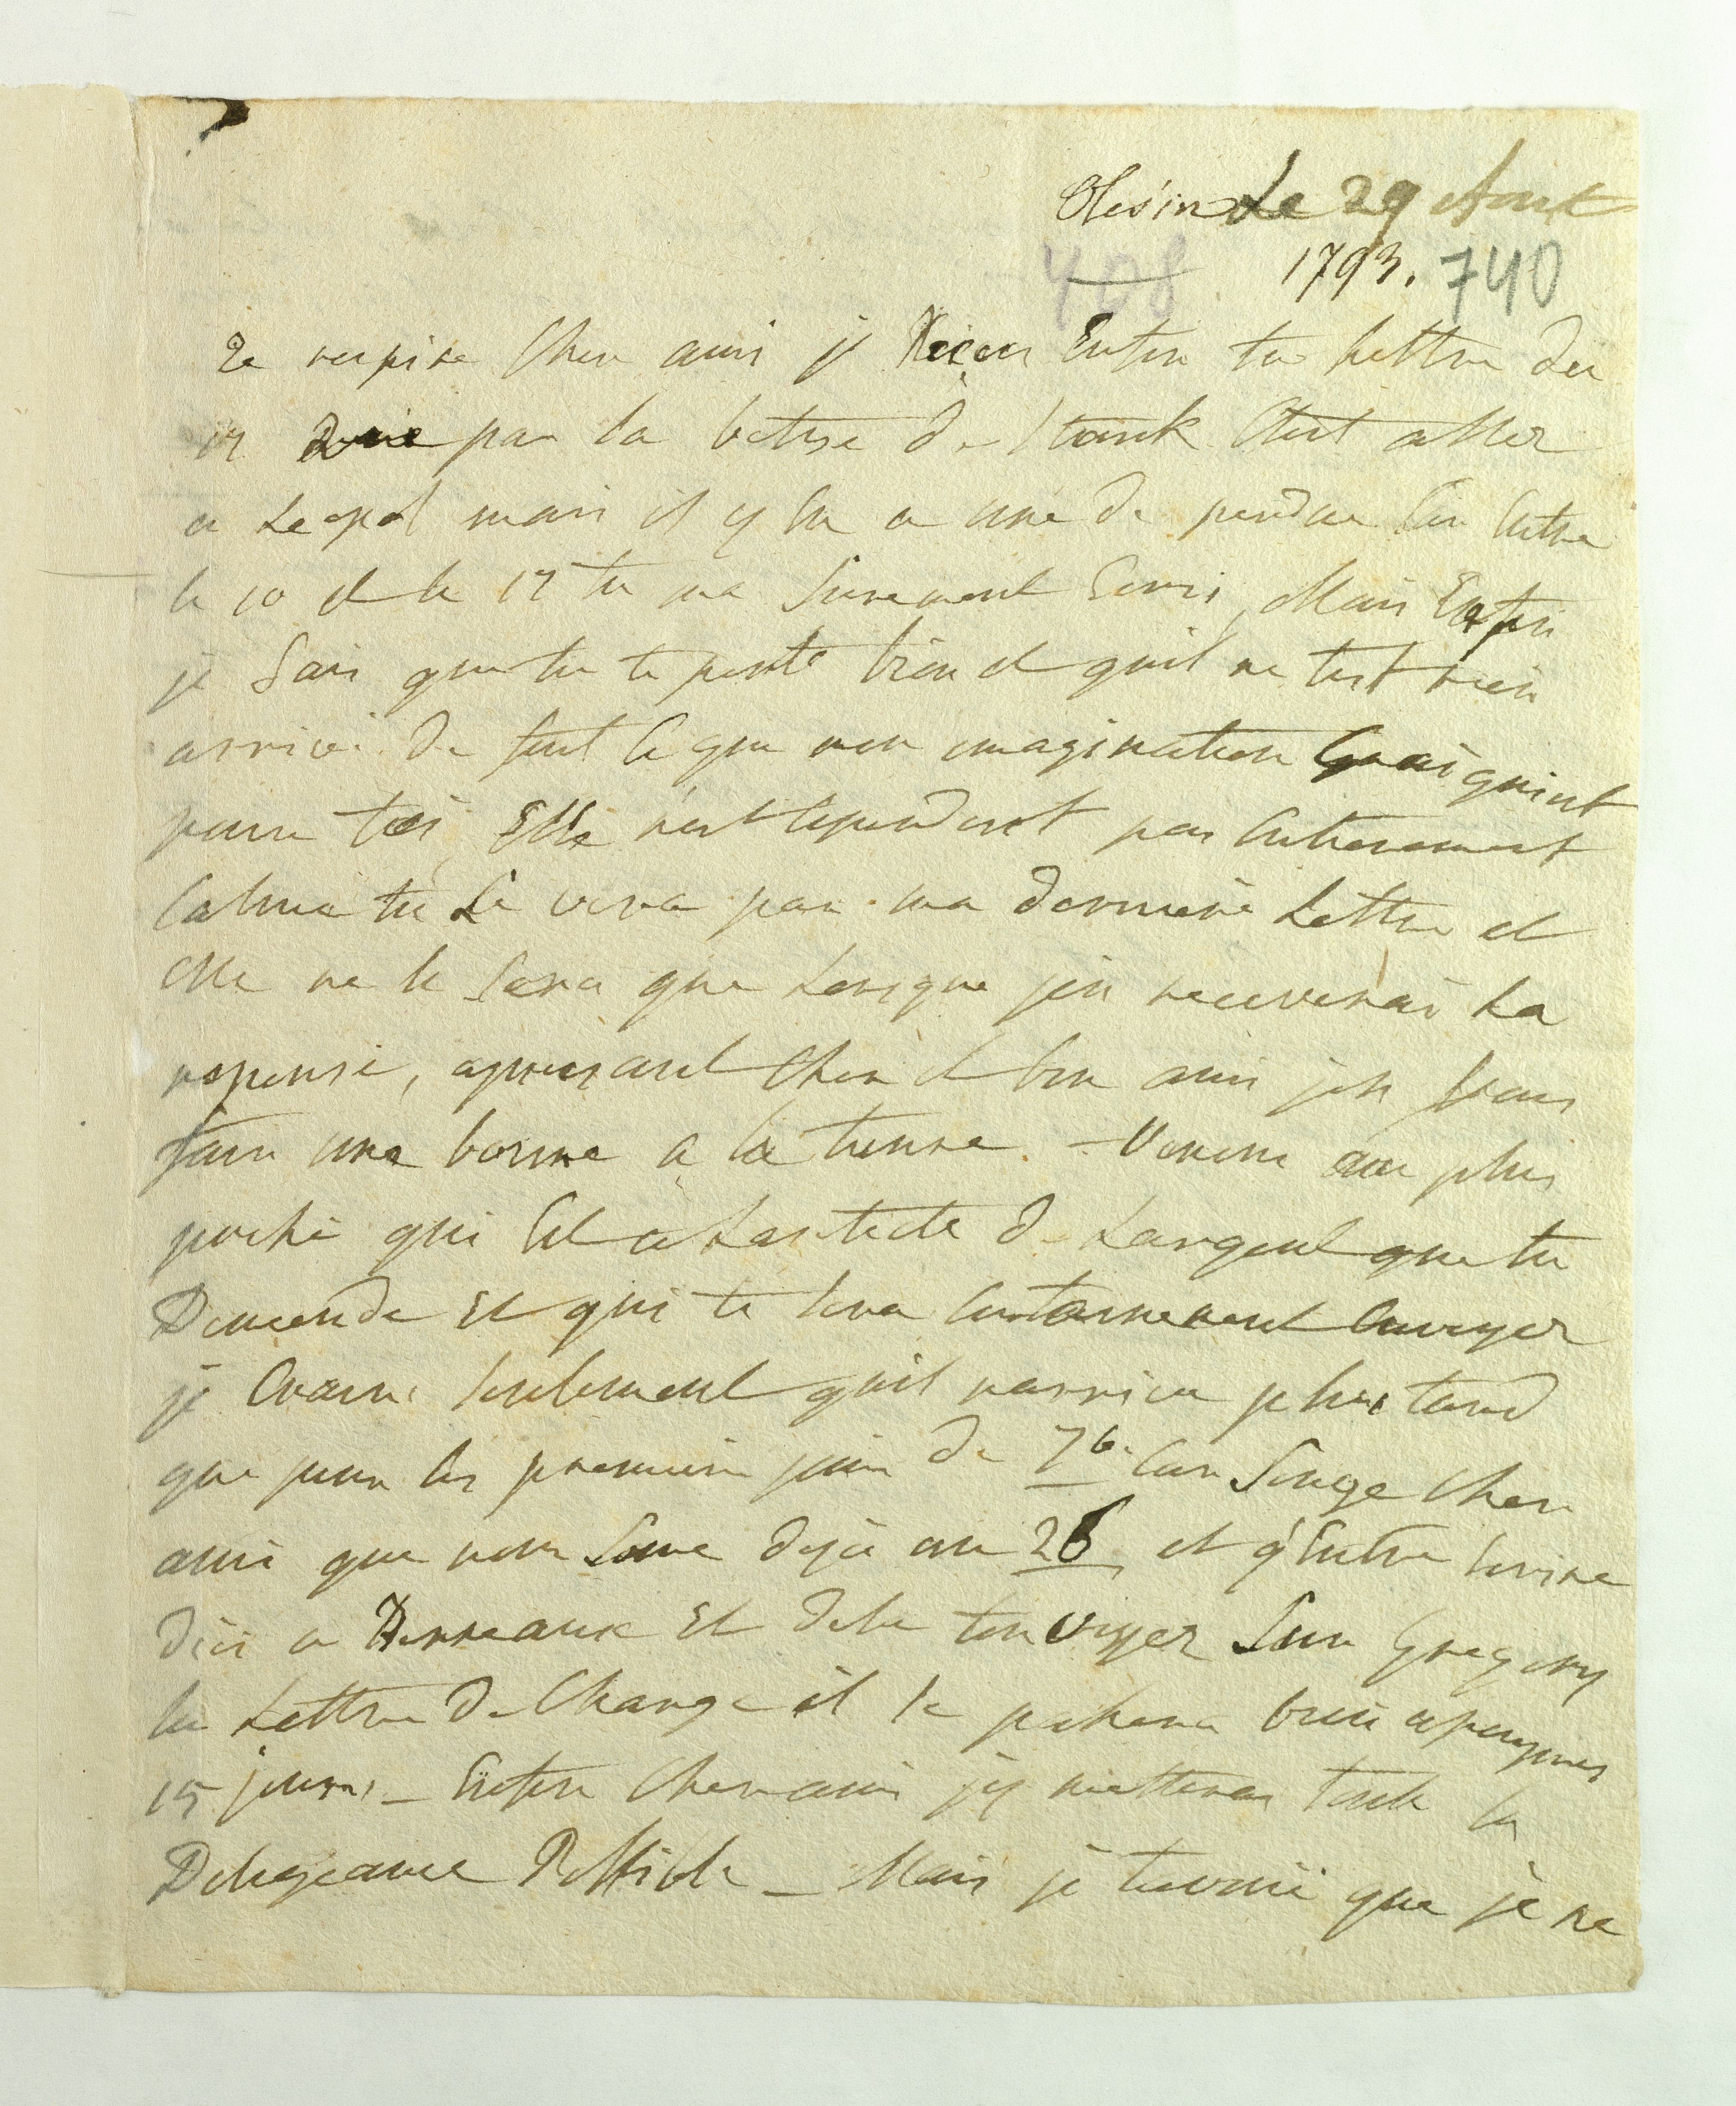 Olesin Le 29 Aout
408 1793. 740
Je respire Cher ami je Recou Enfin ta Lettre du
17 par la betise de Etoit aller
a Leopol mais il y En a une de perdue Car Entre
le 10 et le 17 tu ma Surement Ecrri, Mais Enfin
je Sais que tu te porte bien et quil ne test rien
arrivé de tout Ce que mon imagination Craignioit
pour toi, Elle nest Cependent pas Entierement
Calmé tu Le vera par ma derniere Lettre et
Elle ne le Sera que Lorsque jen receverai La
reponse, apresent Cher et bon ami jen Vais
faire une bonne a la tienne. - Venons au plus
préssé qui Est a Lartiele de Largent que tu
Demende Et qui te Sera Certainement Envoyer
je Crains Seulement quil narrive plus tard
que pour les premiers jour de 7b. Car Songe Cher
ami que nous Some deja au 26 et qEntre Ecrire
dici a Et dela tenvoyer Sur Gregory
la Lettre de Change il Se pasera bien apeuprés
15 jours, - Enfin Cher ami jy metterai toute la
Deligeance Possible - Mais je tavoue que je ne